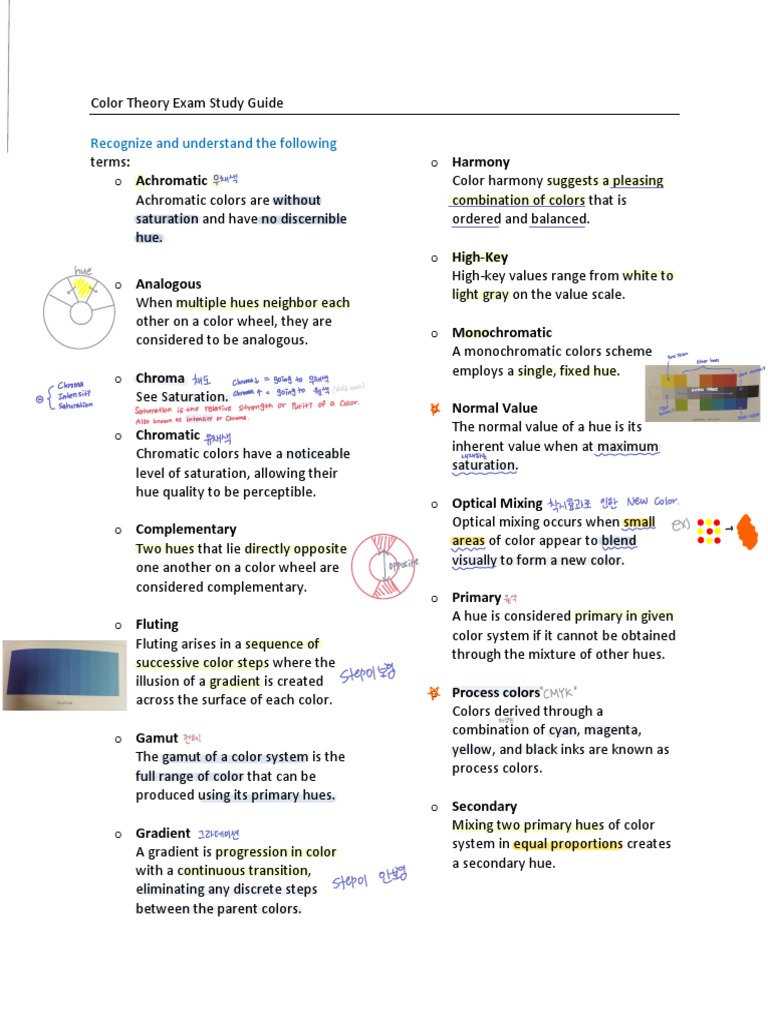 Color Theory Exam Study Guide
Recognize and understand the following
terms:
o Achromatic 무채색
Achromatic colors are without
saturation and have no discernible
hue.
hue
o Analogous
When multiple hues neighbor each
other on a color wheel, they are
considered to be analogous.
o Chroma 채도 Chroma↓ = going to 무채색
Chroma↑ = going to 원색
See Saturation.
Saturation is the relative strength or Purity of a Color.
Also known as Intensity or Chroma.
Chroma
Intensity
Saturation
o Chromatic 유채색
Chromatic colors have a noticeable
level of saturation, allowing their
hue quality to be perceptible.
o Complementary
Two hues that lie directly opposite
one another on a color wheel are
considered complementary.
opposite
o Fluting
Fluting arises in a sequence of
successive color steps where the
illusion of a gradient is created
across the surface of each color.
step이 보임
o Gamut 전체
The gamut of a color system is the
full range of color that can be
produced using its primary hues.
o Gradient 그라데이션
A gradient is progression in color
with a continuous transition,
eliminating any discrete steps
between the parent colors.
step이 안보임
o Harmony
Color harmony suggests a pleasing
combination of colors that is
ordered and balanced.
o High-Key
High-key values range from white to
light gray on the value scale.
o Monochromatic
A monochromatic colors scheme
employs a single, fixed hue.
o Normal Value
The normal value of a hue is its
inherent value when at maximum
내재하는
saturation.
o Optical Mixing 착시효과로 인한 New Color.
Optical mixing occurs when small
areas of color appear to blend
visually to form a new color.
ex) →
o Primary 원색
A hue is considered primary in given
color system if it cannot be obtained
through the mixture of other hues.
o Process colors "CMYK"
Colors derived through a
combination of cyan, magenta,
yellow, and black inks are known as
process colors.
o Secondary
Mixing two primary hues of color
system in equal proportions creates
a secondary hue.